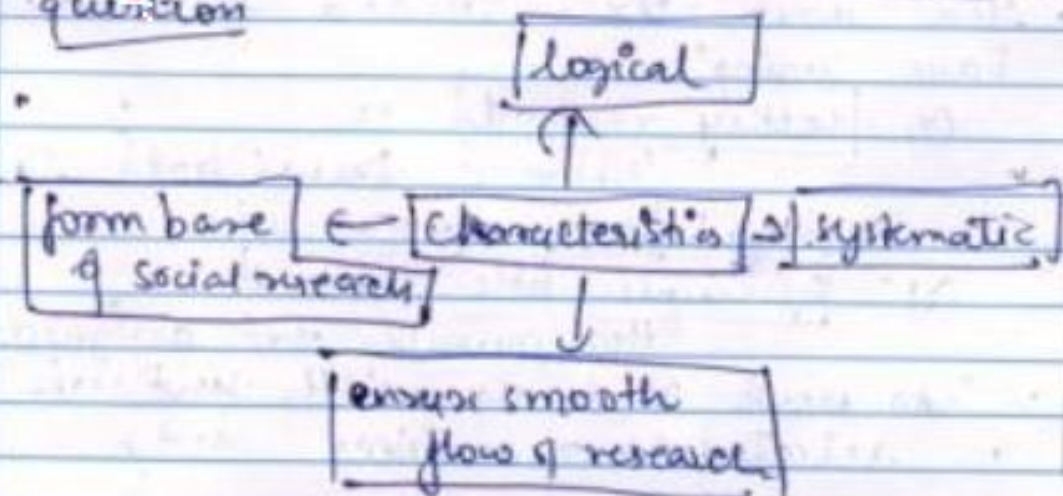 question
logical
form base
of social research
characteristics
systematic
ensure smooth
flow of research